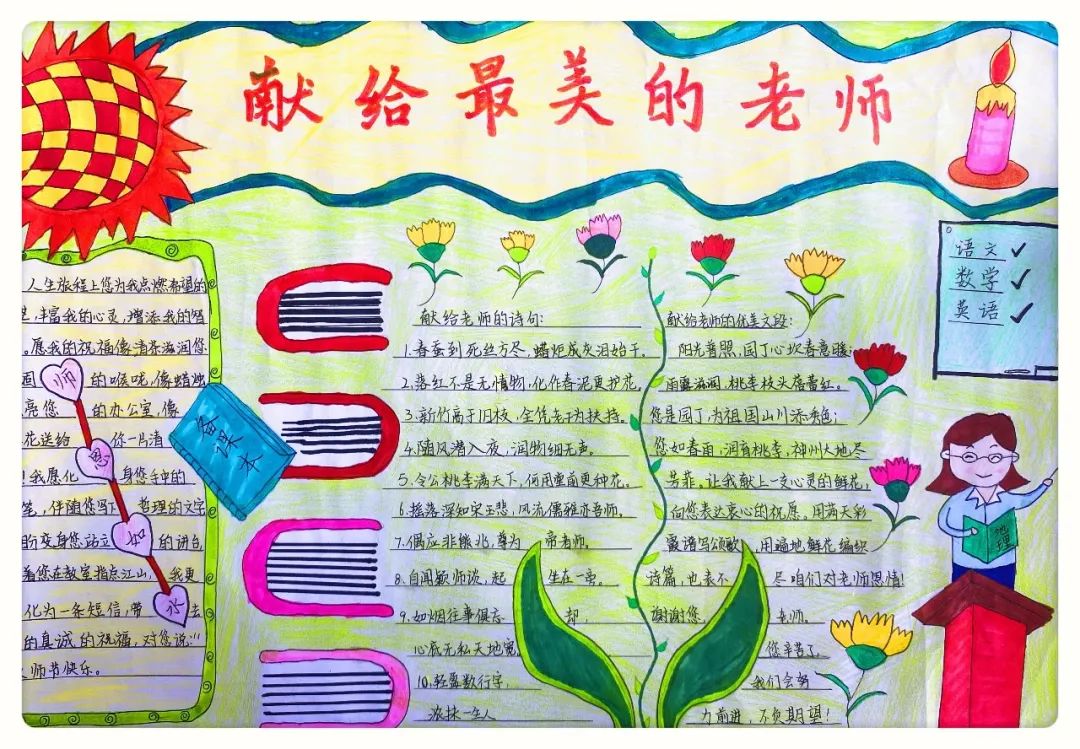 献给最美的老师
人生旅程上您为我点燃希望的
丰富我的心灵,增添我的智
。愿我的祝福像清泉滋润您
的喉咙,像蜡烛
亮您 的办公室,像
花送给 你一片清
!我愿化 身您手中的
笔,伴随您写下 哲理的文字
变身您站立 的讲台
着您在教室指点江山, 我更
化为一条短信,带 去
的真诚的祝福,对您说:
师节快乐。
师
恩
如
水
备课本
献给老师的诗句:
1.春蚕到死丝方尽,蜡炬成灰泪始干。
2.落红不是无情物,化作春泥更护花。
3.新竹高于旧枝,全凭老干为扶持。
4.随风潜入夜,润物细无声。
5.令公桃李满天下,何用堂前更种花。
6.摇落深知宋玉悲,风流儒雅亦吾师。
7.偶应非熊兆,尊为 帝老师。
8.自闻颖师谈,起 生在一旁。
9.如烟往事俱忘 却,
心底无私天地宽
10.轻盈数行字,
浓抹一生人
献给老师的优美文段:
阳光普照,园丁心坎春意暖;
雨露滋润,桃李枝头蓓蕾红。
您是园丁,为祖国山川添秀色;
您如春雨,润育桃李,神州大地尽
芳菲,让我献上一支心灵的鲜花,
向您表达衷心的祝愿。用满天彩
霞谱写颂歌,用遍地鲜花编织
诗篇,也表不 尽咱们对老师恩情!
谢谢您, 老师。
您辛苦了,
我们会努
力前进,不负期望!
语文✓
数学✓
英语✓
地理